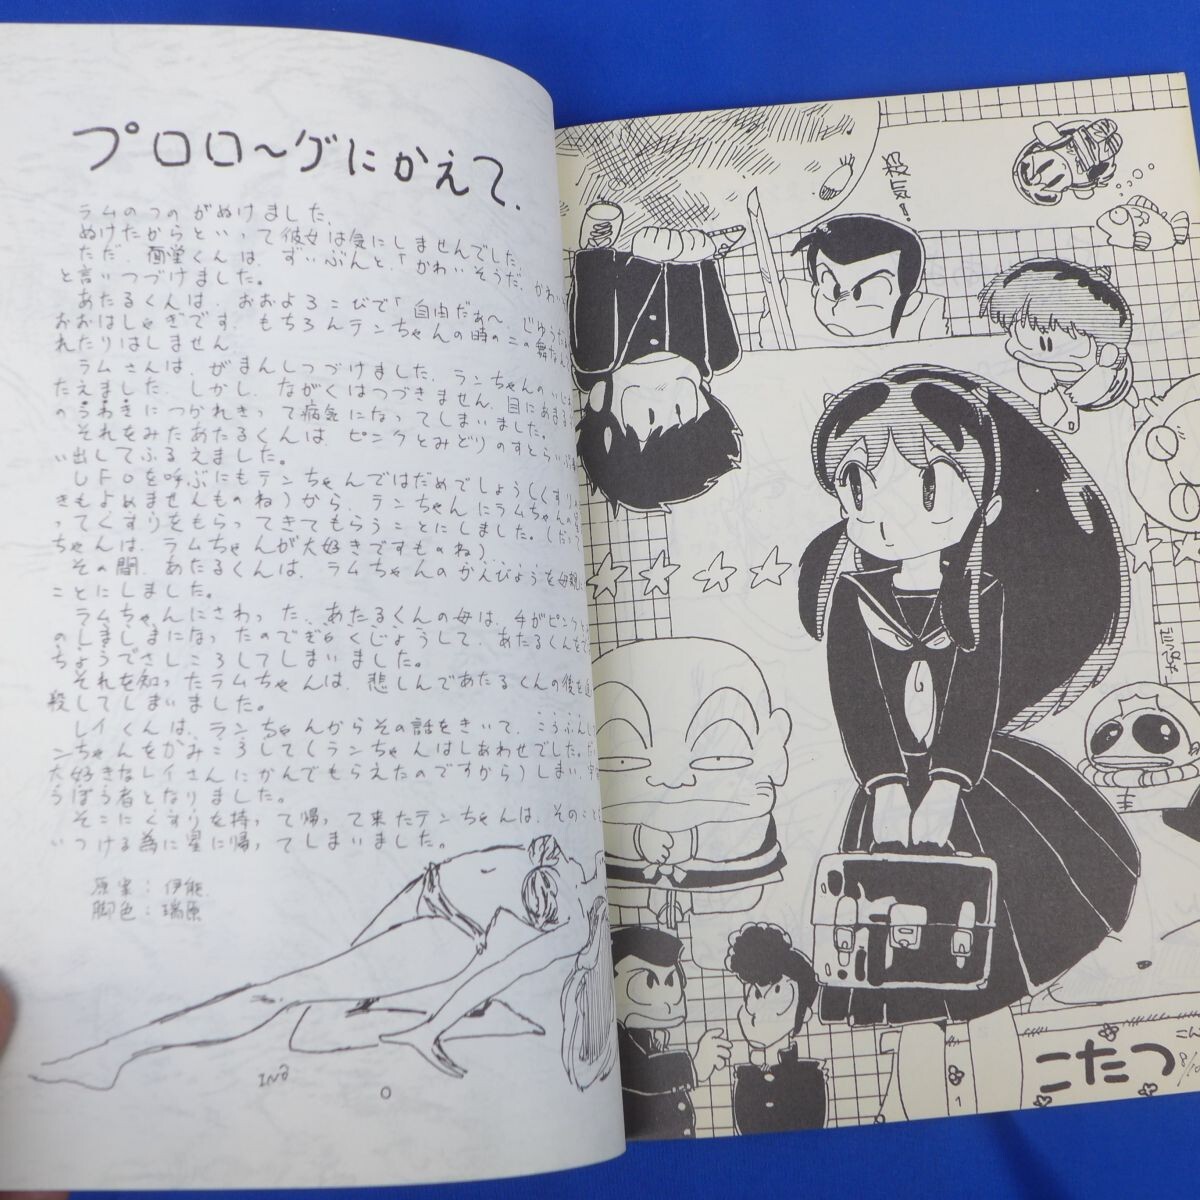 プロローグにかえて.
ラムのつのがぬけました.
ぬけたからといって彼女は気にしませんでした.
ただ.面堂くんは.ずいぶんと.「かわいそうだ.かわい
と言いつづけました。
あたるくんは.おおよろこびで「自由だぁ〜.じゆうだ
おおはしゃぎです.もちろんテンちゃんの時の二の舞なん
れたりはしません.
ラムさんは.がまんしつづけました.ランちゃんの
たえました.しかし.ながくはつづきません.目にあまる
のうわきにつかれきって病気になってしまいました。
それをみたあたるくんは ピンクとみどりのすとらいぷ
い出してふるえました。
UFOを呼ぶにもテンちゃんではだめでしょう(くすり
きもよめませんものね)から.テンちゃんにラムちゃんの
ってくすりをもらってきてもらうことにしました。(だっ
ちゃんは.ラムちゃんが大好きですものね)
その間.あたるくんは.ラムちゃんのかんびょうを母親に
ことにしました。
ラムちゃんにさわった.あたるくんの母は.手がピンクと
のしましまになったのでぎゃくじょうして.あたるくんを
ちょうでさしころしてしまいました。
それを知ったラムちゃんは.悲しんであたるくんの後を追
殺してしまいました。
レイくんは.ランちゃんからその話をきいて.こうふんし
ンちゃんをかみころして(ランちゃんはしあわせでした.だ
大好きなレイさんにかんでもらえたのですから)しまい.宇
うぼう者となりました。
そこにくすりを持って帰って来たテンちゃんは.そのことを
いつける為に星に帰ってしまいました。
原案:伊能
脚色:瑞原
INO
0
殺気!
こたつ
こん
8/10
1